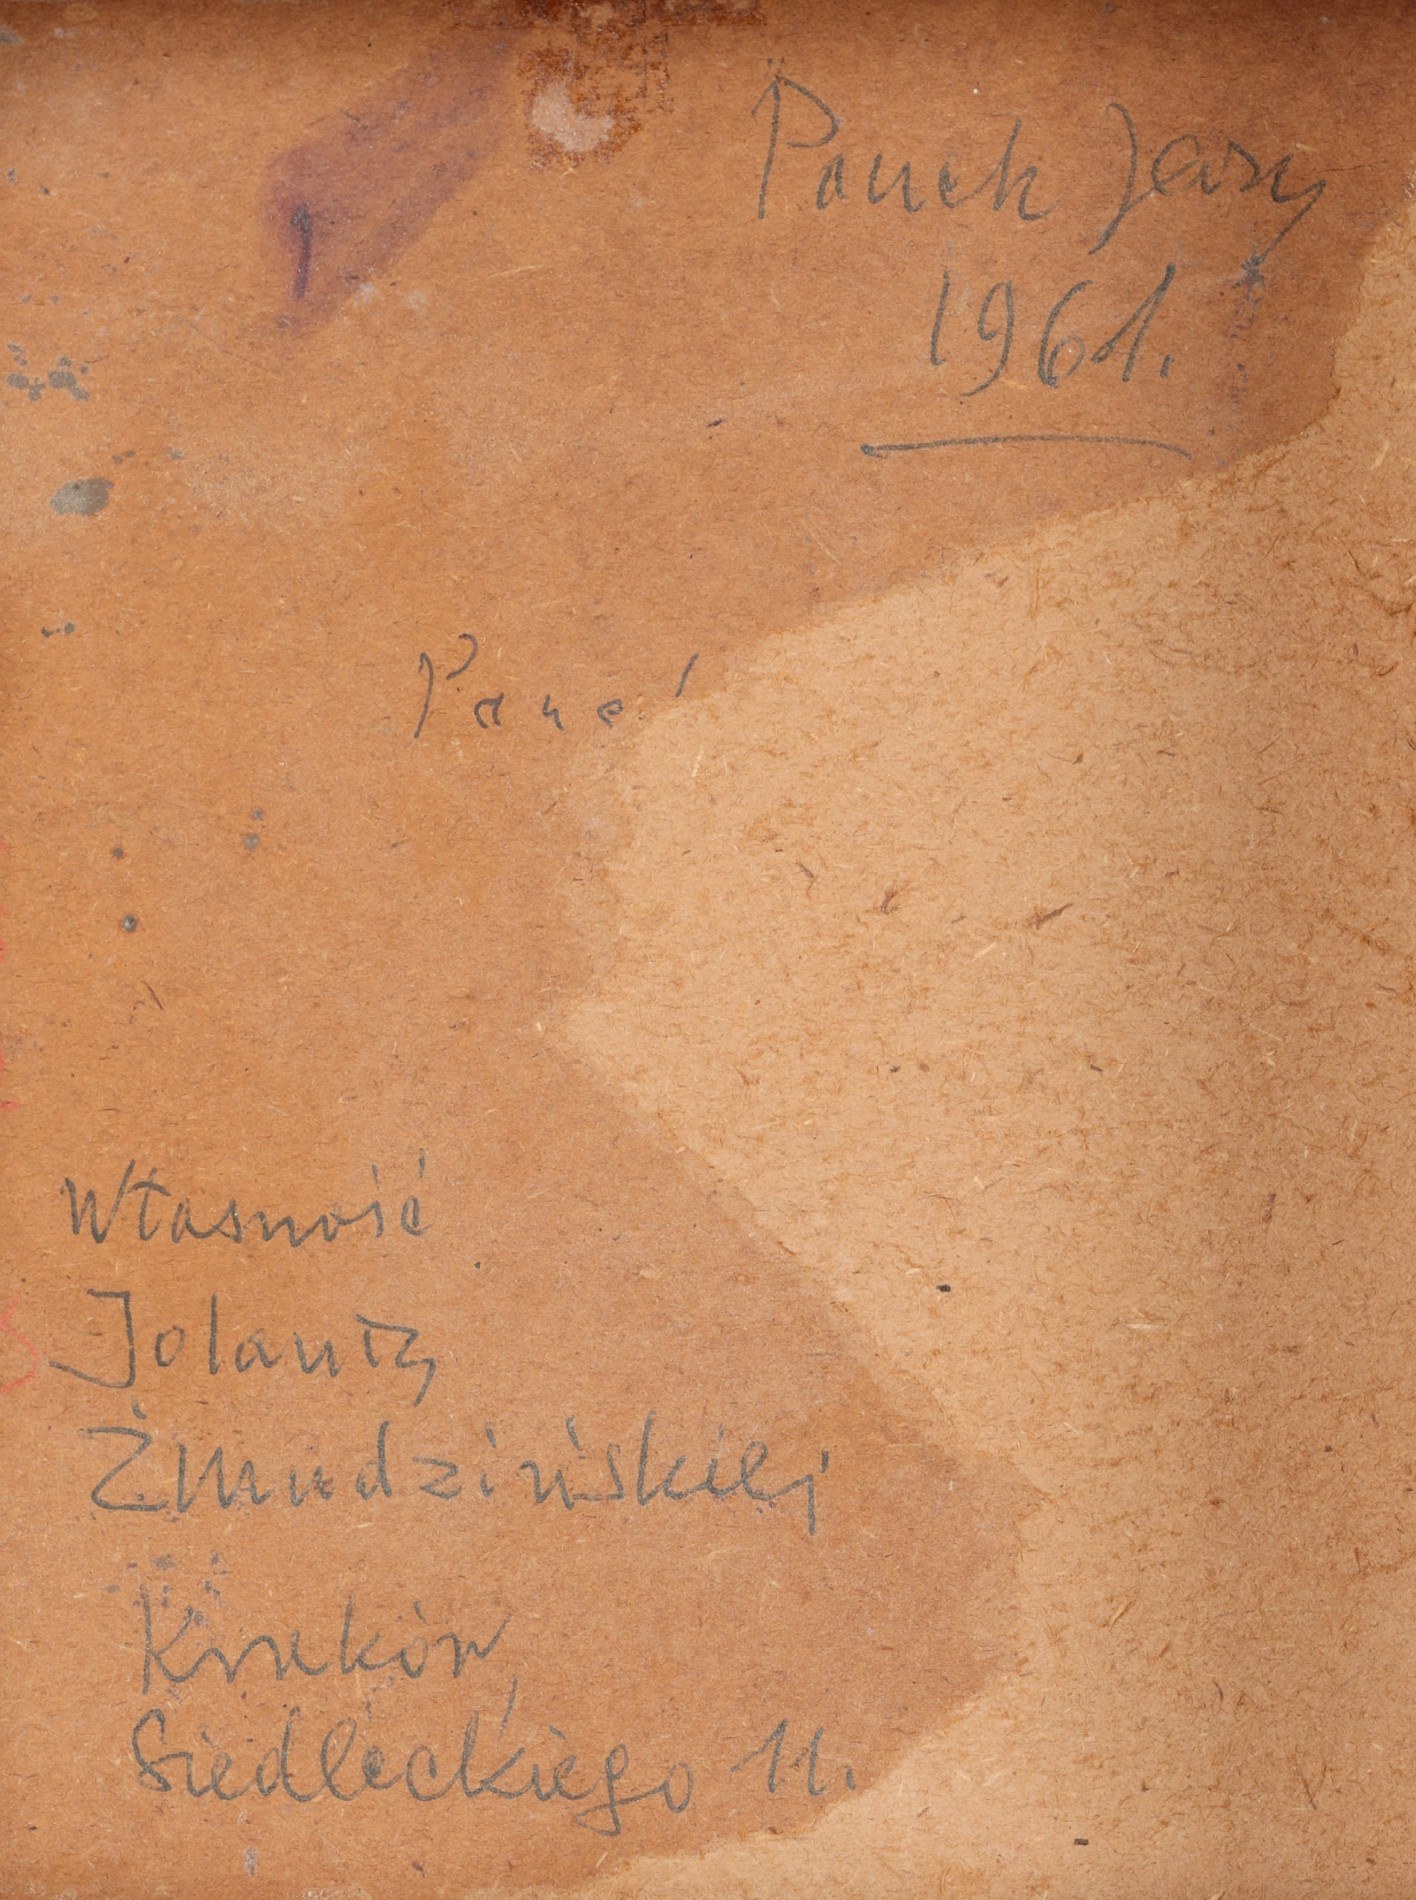 Panek Jerzy
1961.
Pane
Własność
Jolanty
Żmudzińskiej
Kraków,
Siedleckiego 11.